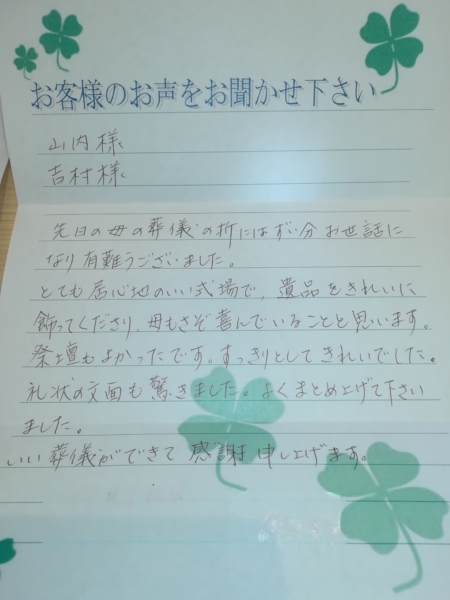 お客様のお声をお聞かせ下さい
山内様
吉村様
先日の母の葬儀の折にはずい分お世話に
なり有難うございました。
とても居心地のいい式場で、遺品をきれいに
飾ってくださり、母もさぞ喜んでいることと思います。
祭壇もよかったです。すっきりとしてきれいでした。
礼状の文面も驚きました。よくまとめ上げて下さい
ました。
いい葬儀ができて感謝申し上げます。